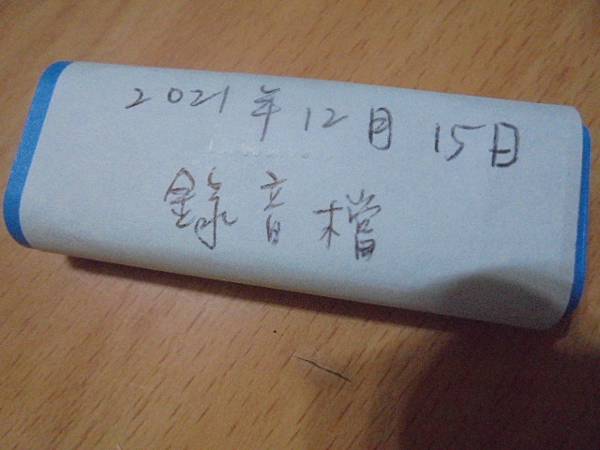 2021年12月15日
錄音檔